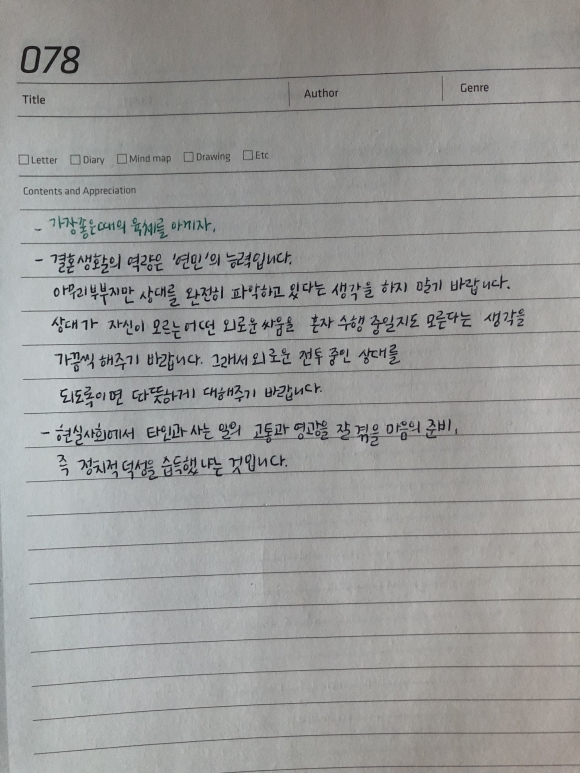 078
Title Author Genre
Letter Diary Mind map Drawing Etc
Contents and Appreciation
- 가장 좋은 때의 육체를 아끼자.
- 결혼생활의 역량은 '연민'의 능력입니다.
아무리 부부지만 상대를 완전히 파악하고 있다는 생각을 하지 말기 바랍니다.
상대가 자신이 모르는 어떤 외로운 싸움을 혼자 수행 중일지도 모른다는 생각을
가끔씩 해주기 바랍니다. 그래서 외로운 전투 중인 상대를
되도록이면 따뜻하게 대해주기 바랍니다.
- 현실사회에서 타인과 사는 일의 고통과 영광을 잘 겪을 마음의 준비,
즉 정치적 덕성을 습득했냐는 것입니다.